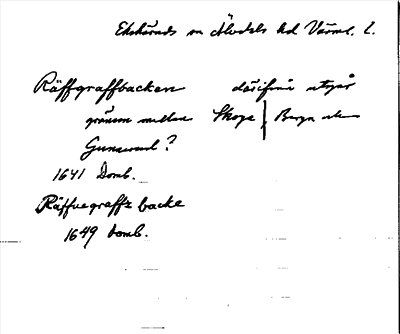 Ekshärads sn Älvdals hd Värml. l.
Räffgraffbacken därifrå utgår
gränsen mellan Skoga | Bergn
Gunnerud?
1641 Domb.
Räffuegraffz backe
1649 domb.